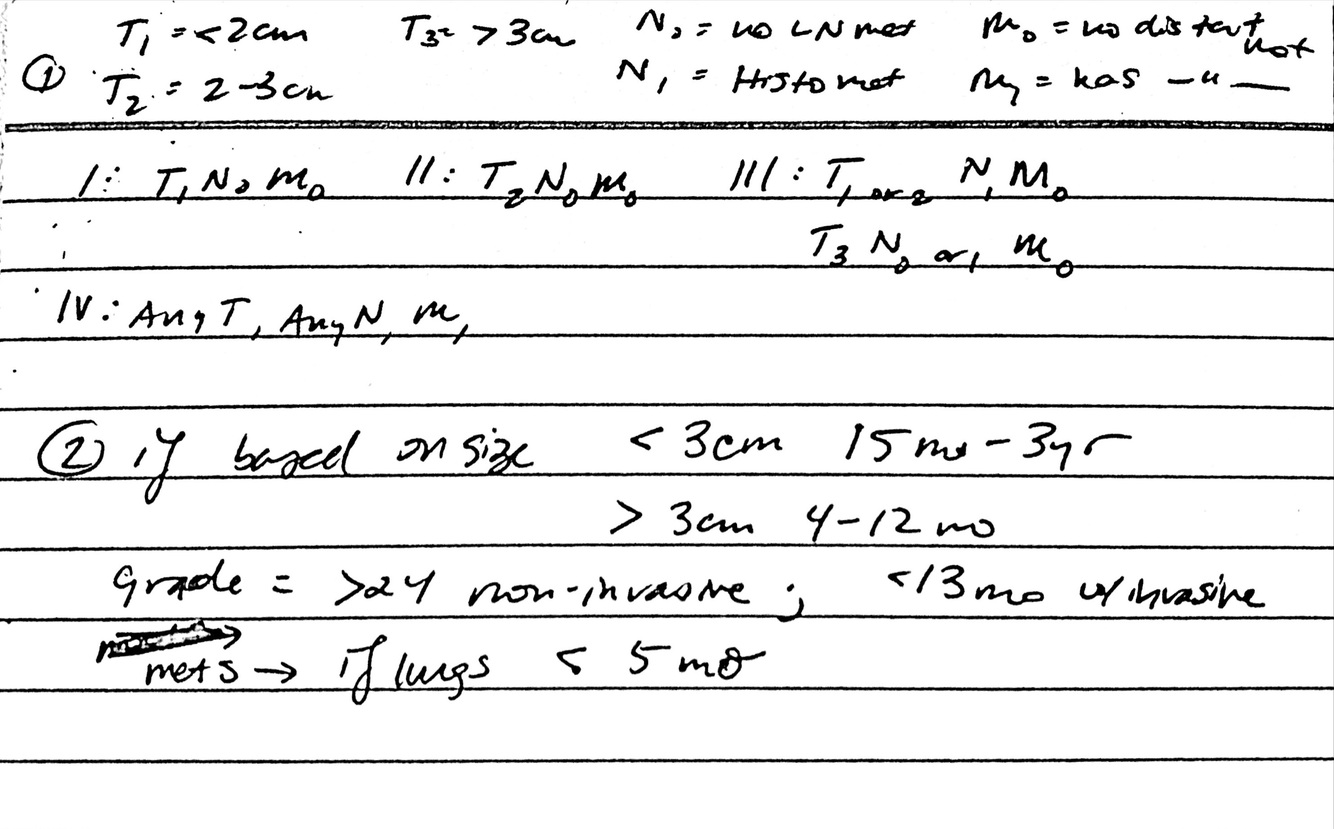 ① T₁ = <2cm T₃ = >3cm N₀ = no LN met M₀ = no distant met
T₂ = 2-3cm N₁ = Histo met M₁ = has -"-
I: T₁ N₀ M₀ II: T₂ N₀ M₀ III: T₁ or ₂ N₁ M₀
T₃ N₀ or ₁ M₀
IV: Any T, Any N, M₁
② if based on size <3cm 15 mo - 3yr
> 3cm 4-12 mo
grade = >24 non-invasive ; <13 mo w/ invasive
mets → if lungs < 5 mo